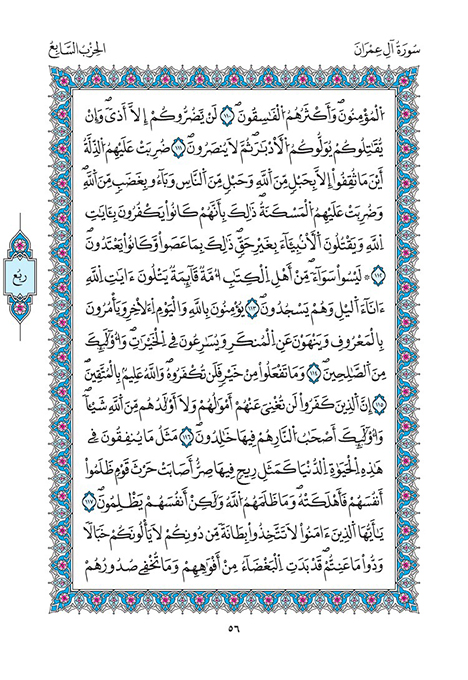 سُورَةُ آلِ عِمْرَانَ
الحِزْبُ السَّابِعُ
اَ۬لْمُومِنُونَۖ وَأَكْثَرُهُمُ اُ۬لْفَٰسِقُونَۖ ١١٠ لَنْ يَّضُرُّوكُمُۥٓ إِلَّآ أَذيٗۖ وَإِنْ
يُّقَٰتِلُوكُمْ يُوَلُّوكُمُ اُ۬لَادْبَٰرَۖ ثُمَّ لَا يُنصَرُونَۖ ١١١ ضُرِبَتْ عَلَيْهِمُ اُ۬لذِّلَّةُ
أَيْنَ مَا ثُقِفُوٓاْ إِلَّا بِحَبْلٖ مِّنَ اَ۬للَّهِ وَحَبْلٖ مِّنَ اَ۬لنَّاسِ وَبَآءُو بِغَضَبٖ مِّنَ اَ۬للَّهِۖ
وَضُرِبَتْ عَلَيْهِمُ اُ۬لْمَسْكَنَةُۖ ذَٰلِكَ بِأَنَّهُمْ كَانُواْ يَكْفُرُونَ بِـَٔايَٰتِ
اِ۬للَّهِ وَيَقْتُلُونَ اَ۬لَانۢبِئَآءَ بِغَيْرِ حَقّٖۖ ذَٰلِكَ بِمَا عَصَواْ وَّكَانُواْ يَعْتَدُونَۖ
١١٢ ۞ لَيْسُواْ سَوَآءٗۖ مِّنَ اَهْلِ اِ۬لْكِتَٰبِ أُمَّةٞ قَآئِمَةٞ يَتْلُونَ ءَايَٰتِ اِ۬للَّهِ
ءَانَآءَ اَ۬ليْلِ وَهُمْ يَسْجُدُونَۖ ١١٣ يُومِنُونَ بِاللَّهِ وَالْيَوْمِ اِ۬لَاخِرِ وَيَامُرُونَ
بِالْمَعْرُوفِ وَيَنْهَوْنَ عَنِ اِ۬لْمُنكَرِ وَيُسَٰرِعُونَ فِے اِ۬لْخَيْرَٰتِۖ وَأُوْلَٰٓئِكَ
مِنَ اَ۬لصَّٰلِحِينَۖ ١١٤ وَمَا تَفْعَلُواْ مِنْ خَيْرٖ فَلَن تُكْفَرُوهُۖ وَاللَّهُ عَلِيمُۢ بِالْمُتَّقِينَۖ
١١٥ إِنَّ اَ۬لذِينَ كَفَرُواْ لَن تُغْنِيَ عَنْهُمُۥٓ أَمْوَٰلُهُمْ وَلَآ أَوْلَٰدُهُم مِّنَ اَ۬للَّهِ شَيْـٔاٗۖ
وَأُوْلَٰٓئِكَ أَصْحَٰبُ اُ۬لنّ۪ارِ هُمْ فِيهَا خَٰلِدُونَۖ ١١٦ مَثَلُ مَا يُنفِقُونَ فِے
هَٰذِهِ اِ۬لْحَيَوٰةِ اِ۬لدُّنْي۪ا كَمَثَلِ رِيحٖ فِيهَا صِرٌّ اَصَابَتْ حَرْثَ قَوْمٖ ظَلَمُوٓاْ
أَنفُسَهُمْ فَأَهْلَكَتْهُۖ وَمَا ظَلَمَهُمُ اُ۬للَّهُ وَلَٰكِنَ اَنفُسَهُمْ يَظْلِمُونَۖ ١١٧
يَٰٓأَيُّهَا اَ۬لذِينَ ءَامَنُواْ لَا تَتَّخِذُواْ بِطَانَةٗ مِّن دُونِكُمْ لَا يَالُونَكُمْ خَبَالاٗ
وَدُّواْ مَا عَنِتُّمْۖ قَدْ بَدَتِ اِ۬لْبَغْضَآءُ مِنَ اَفْوَٰهِهِمْ وَمَا تُخْفِے صُدُورُهُمُۥٓ
رُبُع
٥٦